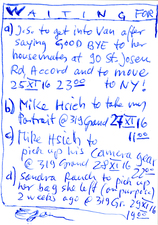 WAITING FOR
a) J.S. to get into Van after
saying GOOD BYE to her
housemates at 30 St. Joseph
Rd, Accord and to move
25 XI 16 23⁰⁰ to NY!
b) Mike Hsich to take my
Portrait @ 319 Grand 27 XI 16
c) Mike Hsich to 11⁰⁰
pick up his Camera Gear
@ 319 Grand 28 XI 16 22⁰⁰
d) Sandra Rauch to pick up
her bag she left (on purpose)
2 weeks ago @ 319 Gr. 29 XI 16
19⁰⁰